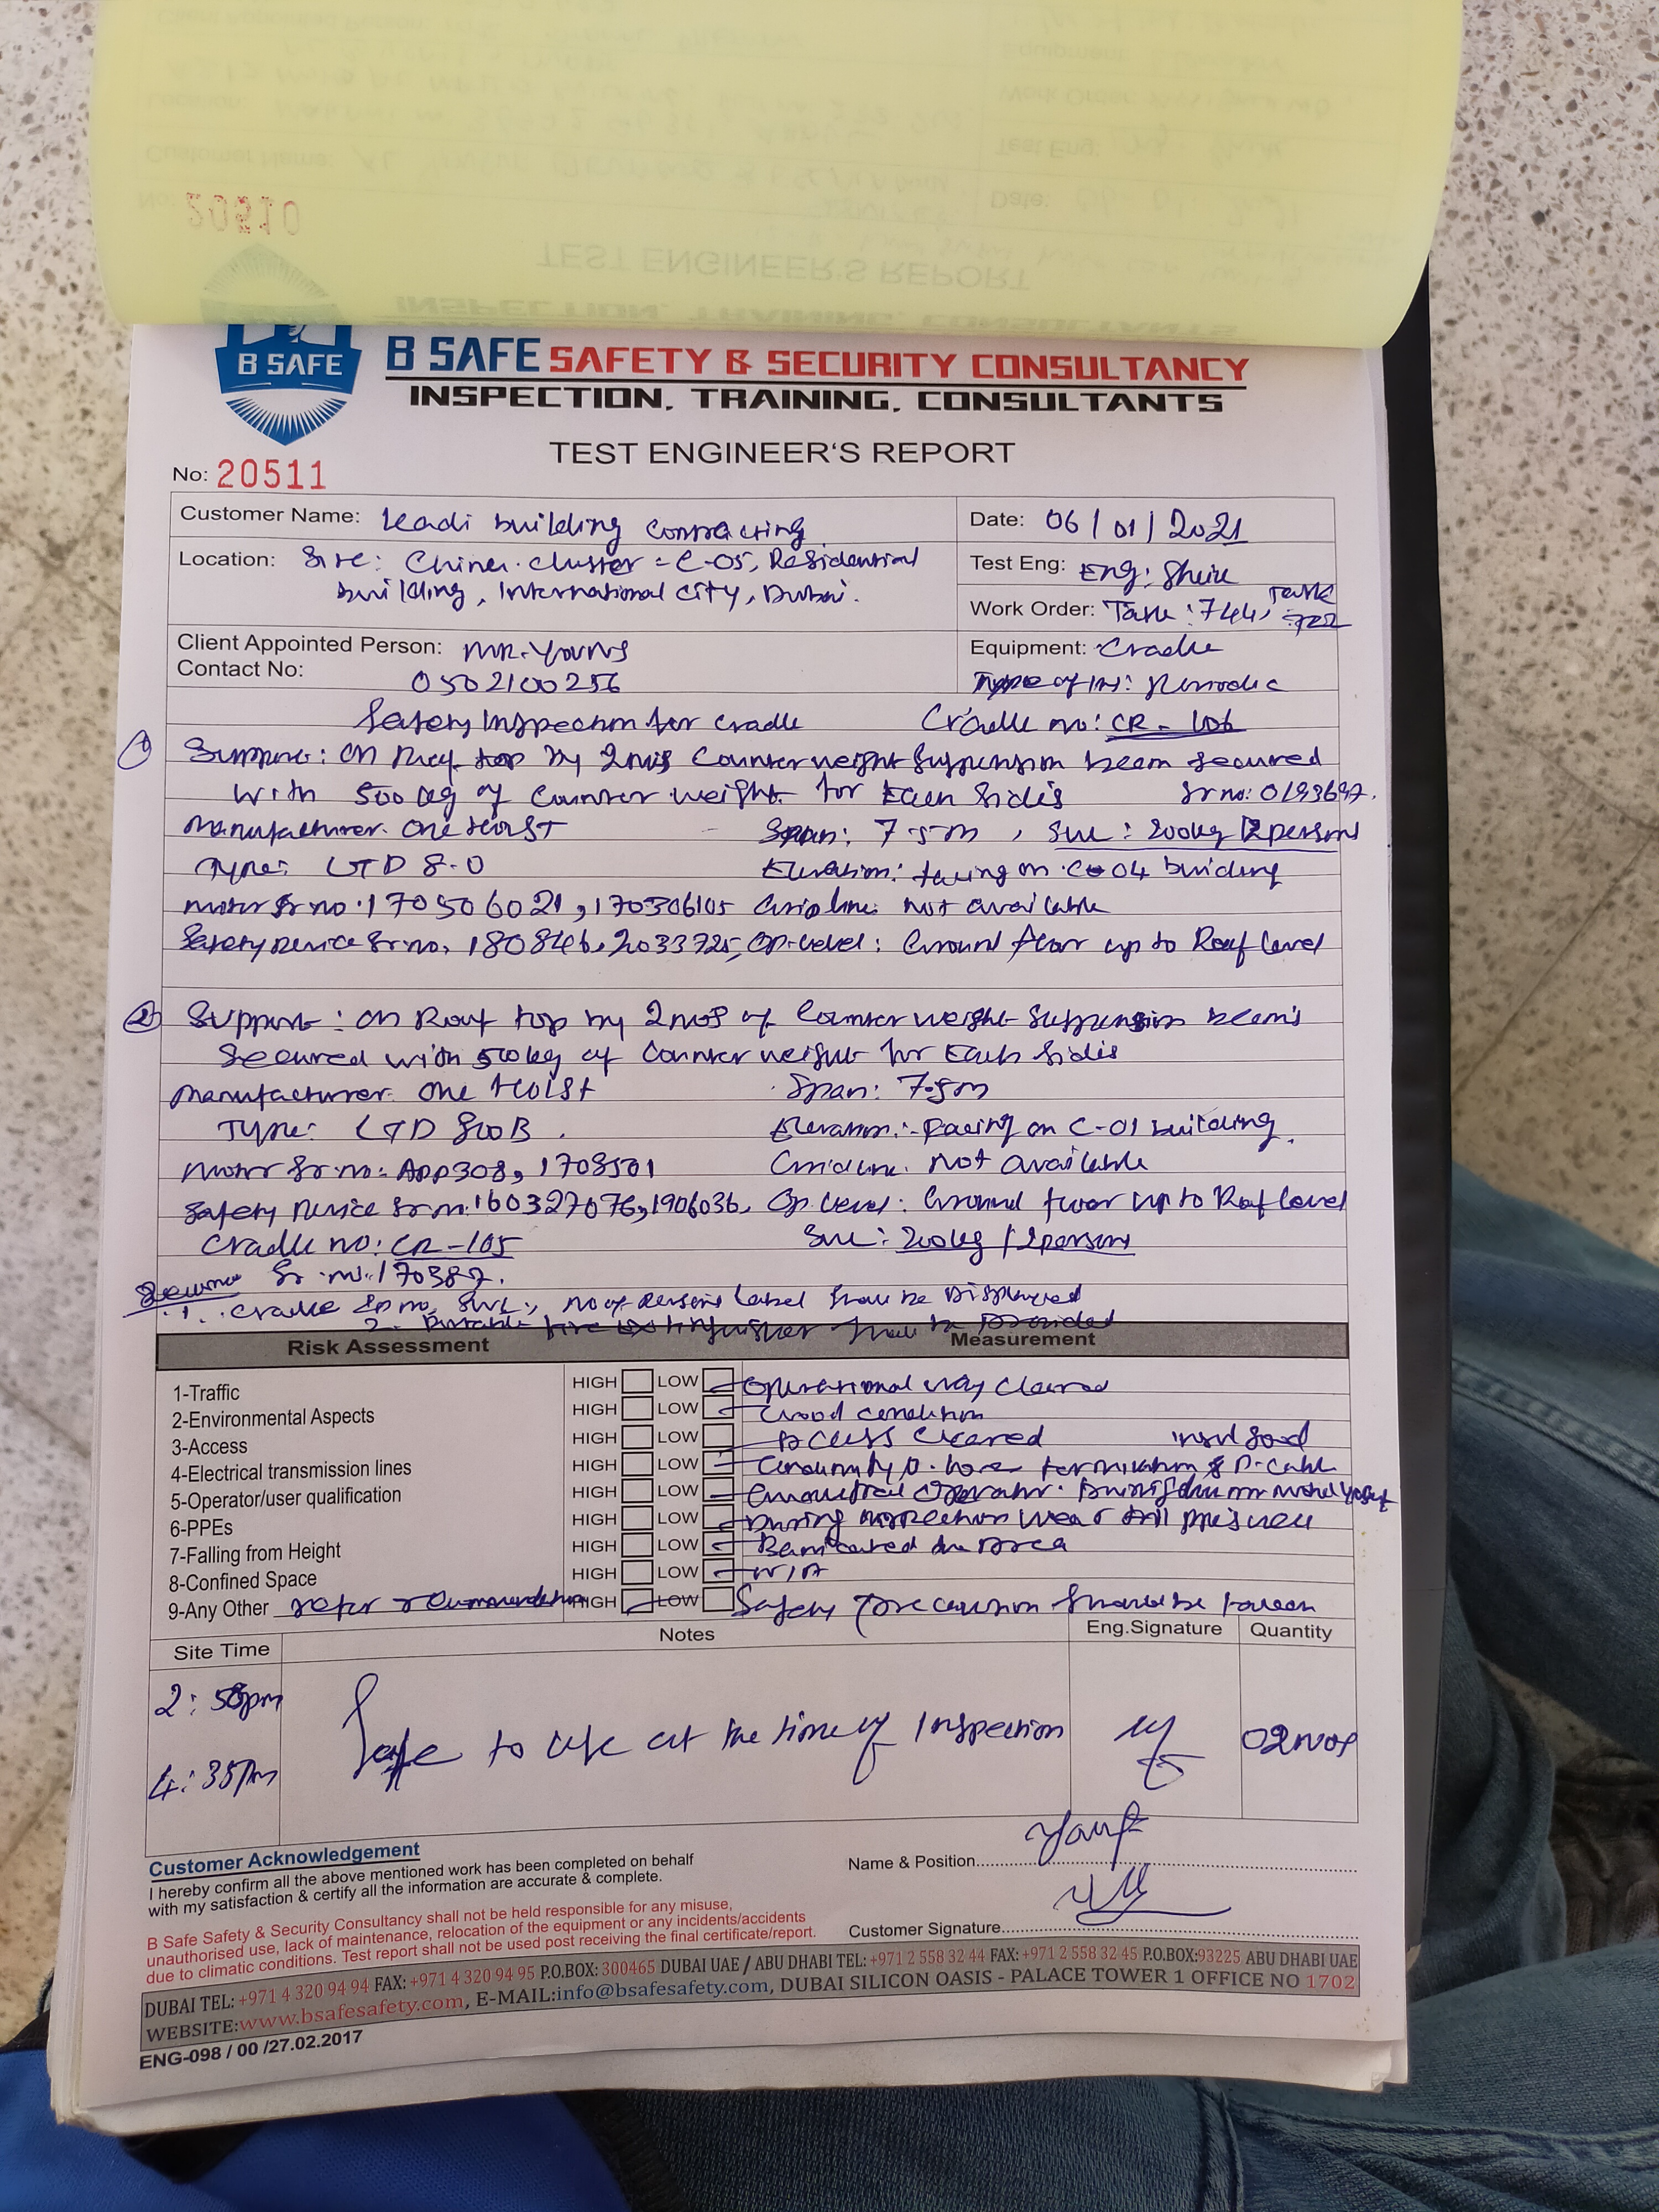 20510
B SAFE
B SAFE SAFETY & SECURITY CONSULTANCY
INSPECTION, TRAINING, CONSULTANTS
TEST ENGINEER'S REPORT
No: 20511
Customer Name: Leadi building contracting
Date: 06/01/2021
Location: Site: China cluster - C-05, Residential
building, International city, Dubai.
Test Eng: Eng: Sheik
Work Order: Task: 744, Task
Client Appointed Person: MR. Younis
Contact No: 0502100256
Equipment: Cradle
Type of In: Periodic
Safety Inspection for cradle Cradle no: CR-106
1 Support: on Roof top by 2nos Counter weight Suspension beam secured
with 500kg of Counter weight for Each Sides Sr no: 0193697.
Manufacturer: One Hoist Span: 7.5m, SWL: 200kg/2persons
Type: LTD 8.0 Elevation: facing on C-04 building
Motor Sr no: 170506021, 170306105 Guideline: Not available
Safety Device Sr no: 180846, 2033725, Op-Level: Ground floor up to Roof level
2 Support: on Roof top by 2nos of Counter weight Suspension beams
Secured with 500kg of Counter weight for Each Sides
Manufacturer: One Hoist Span: 7.5m
Type: LTD 800B. Elevation: Facing on C-01 building.
Motor Sr no: App308, 1708501 Guideline: Not available
Safety Device Sr no: 160327076, 1906036, Op-Level: Ground floor up to Roof level
Cradle no: CR-105 SWL: 200kg/2persons
Sr. no: 170387.
1. Cradle ID no, SWL, no of Persons Label Shall be Displayed
2. Portable fire extinguisher shall be provided
Risk Assessment Measurement
1-Traffic HIGH LOW Operational way cleared
2-Environmental Aspects HIGH LOW Good condition
3-Access HIGH LOW Access cleared
4-Electrical transmission lines HIGH LOW
5-Operator/user qualification HIGH LOW
6-PPEs HIGH LOW During inspection wear all ppe's
7-Falling from Height HIGH LOW Barricated the Area
8-Confined Space HIGH LOW N/A
9-Any Other refer recommendation HIGH LOW Safety precaution should be taken
Site Time Notes Eng.Signature Quantity
2:58pm
Safe to use at the time of Inspection 02nos
4:35pm
Customer Acknowledgement
I hereby confirm all the above mentioned work has been completed on behalf
with my satisfaction & certify all the information are accurate & complete.
Name & Position
B Safe Safety & Security Consultancy shall not be held responsible for any misuse,
unauthorised use, lack of maintenance, relocation of the equipment or any incidents/accidents
due to climatic conditions. Test report shall not be used post receiving the final certificate/report.
Customer Signature
DUBAI TEL: +971 4 320 94 94 FAX: +971 4 320 94 95 P.O.BOX: 300465 DUBAI UAE / ABU DHABI TEL: +971 2 558 32 44 FAX: +971 2 558 32 45 P.O.BOX:93225 ABU DHABI UAE
WEBSITE:www.bsafesafety.com, E-MAIL:info@bsafesafety.com, DUBAI SILICON OASIS - PALACE TOWER 1 OFFICE NO 1702
ENG-098 / 00 /27.02.2017